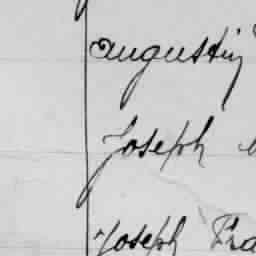 Augustin
Joseph
Joseph Fra